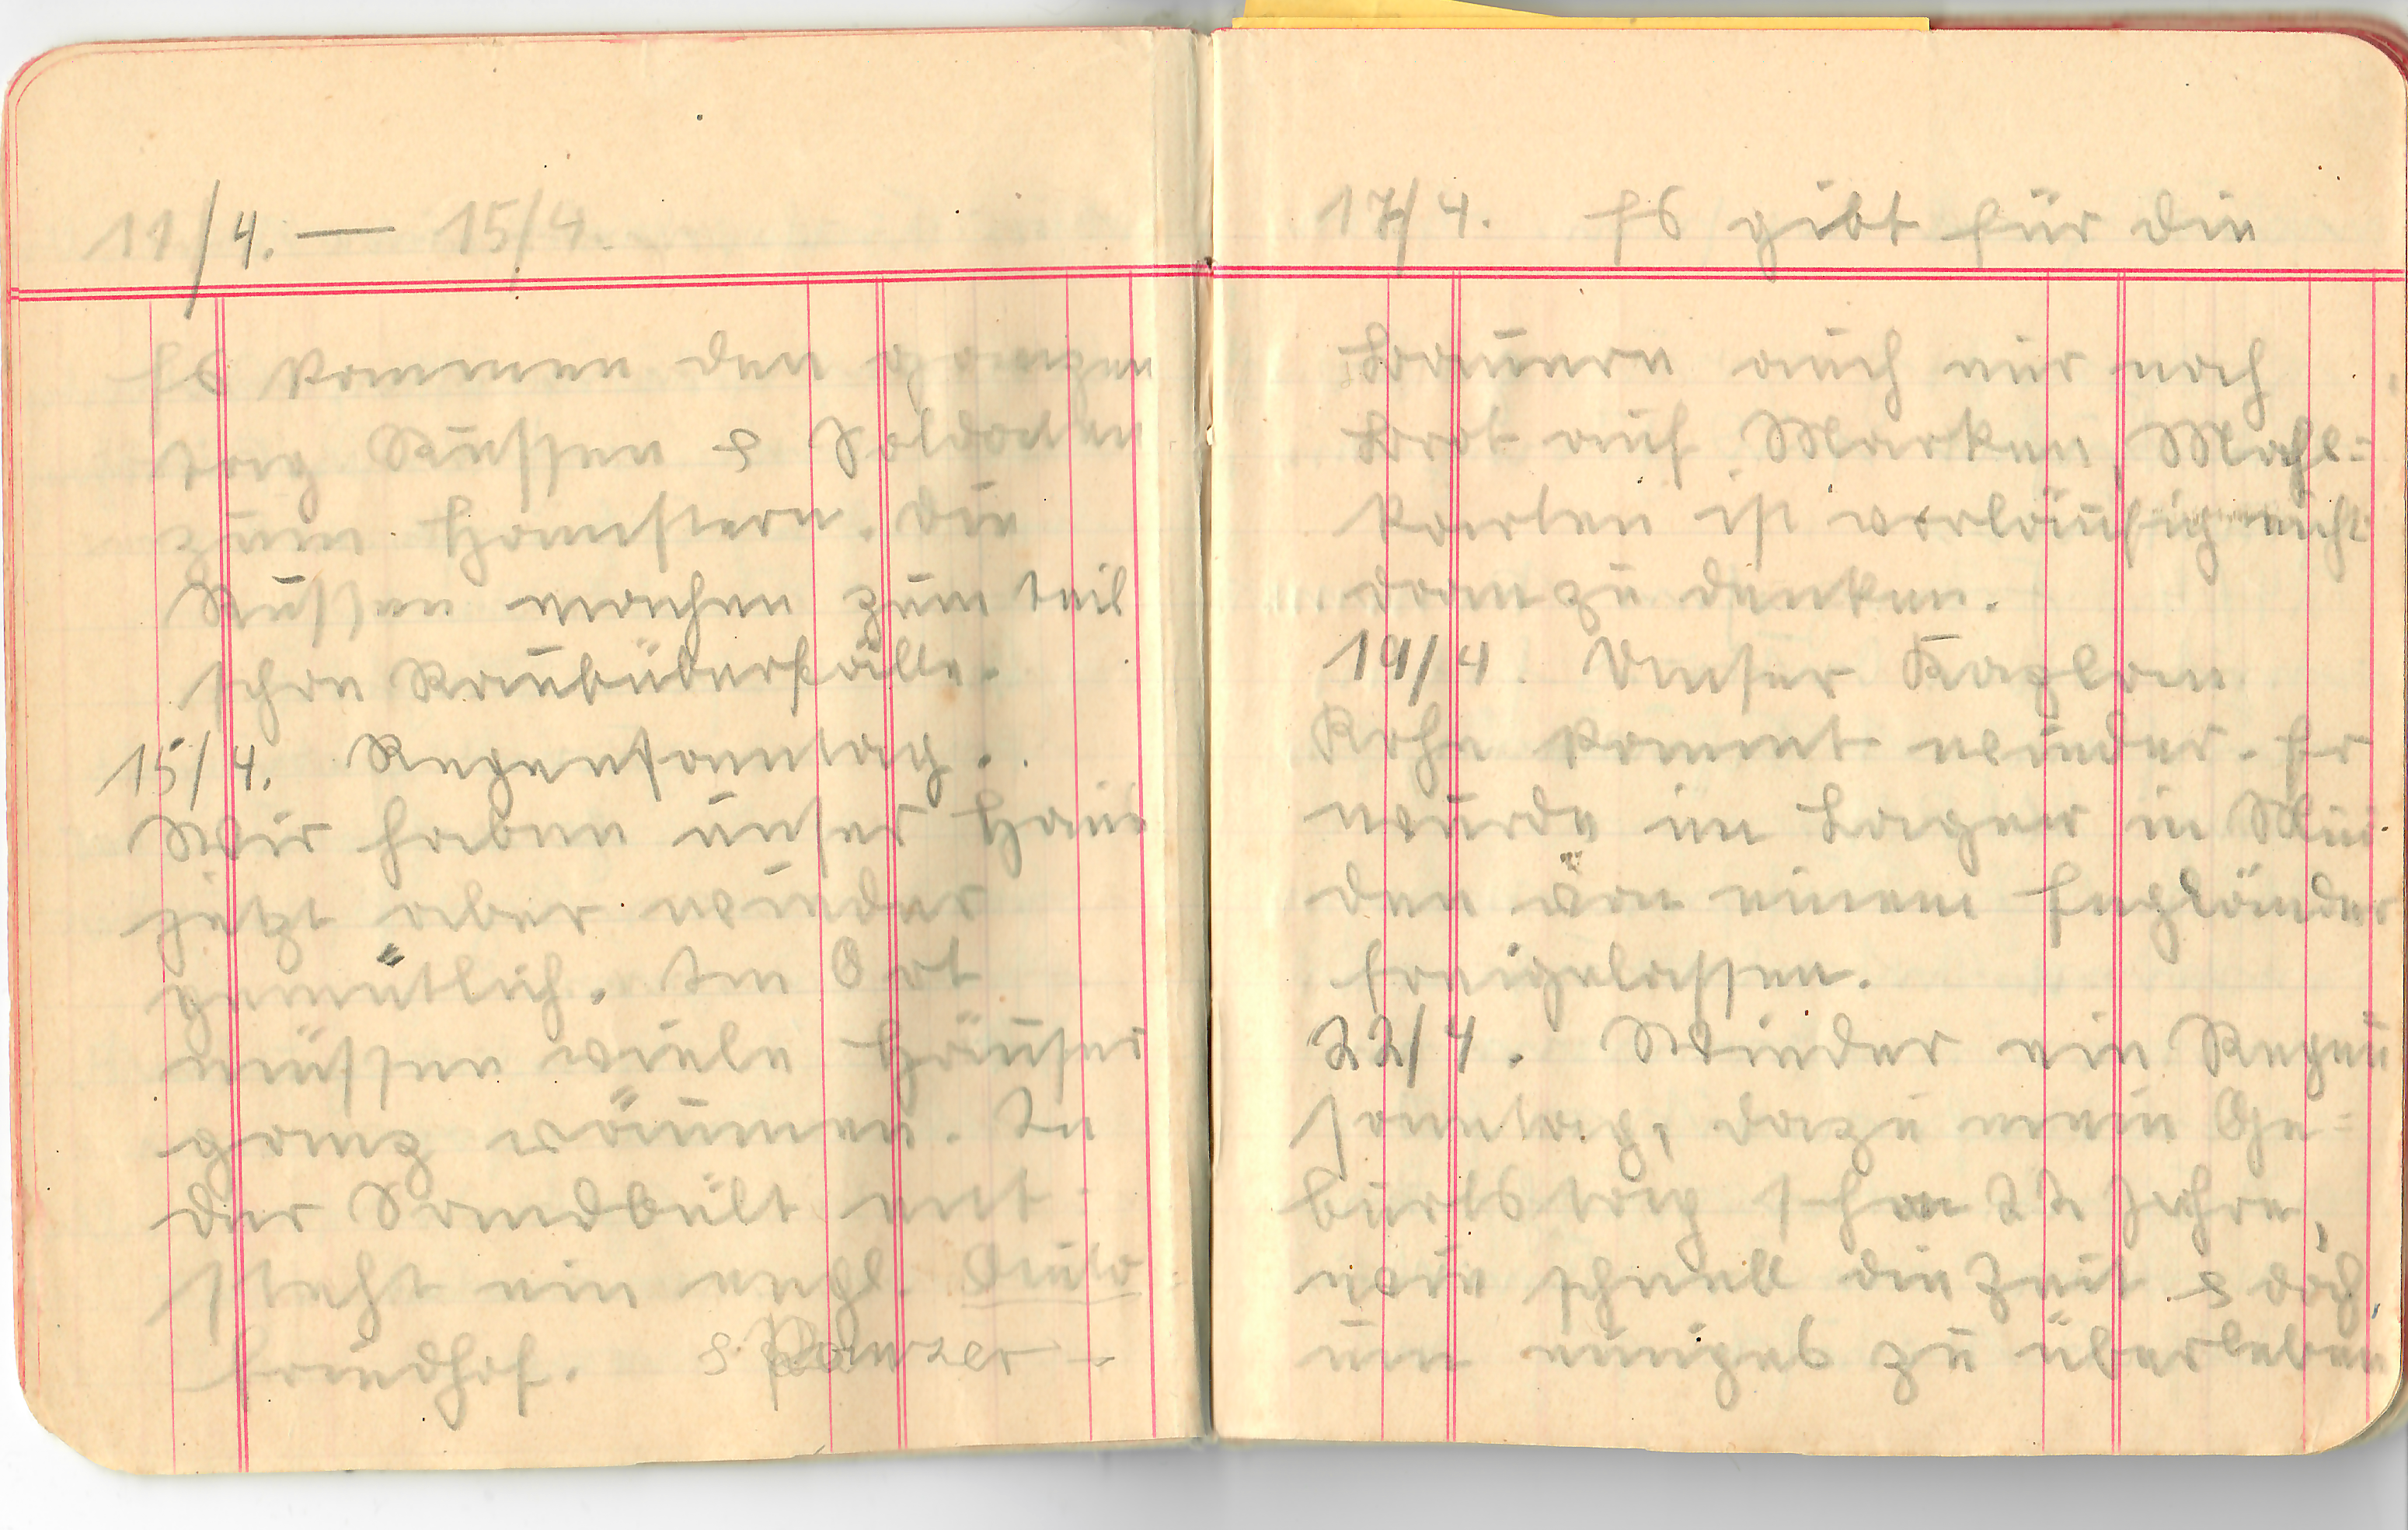 11/4. — 15/4.
Es kommen den ganzen
Tag Russen & Soldaten
zum Hamstern. Die
Russen machen zum Teil
schon Raubüberfälle.
15/4. Regensonntag.
Wir haben unser Haus
jetzt aber wieder
gemütlich. Im Ort
müssen viele Häuser
ganz räumen. In
der Sandbült ent-
steht ein engl. Auto-
friedhof. & Panzer -
17/4. Es gibt für die
Bauern auch nur noch
Brot auf Marken, Mahl=
karten ist vorläufig nicht
dran zu denken.
19/4. Unser Kaplan
kommt wieder. Er
wurde im Lager in Min-
den von einem Engländer
freigelassen.
22/4. Wieder ein Regen
sonntag, dazu mein Ge=
burtstag schon 22 Jahre,
wie schnell die Zeit & doch,
um einiges zu überleben